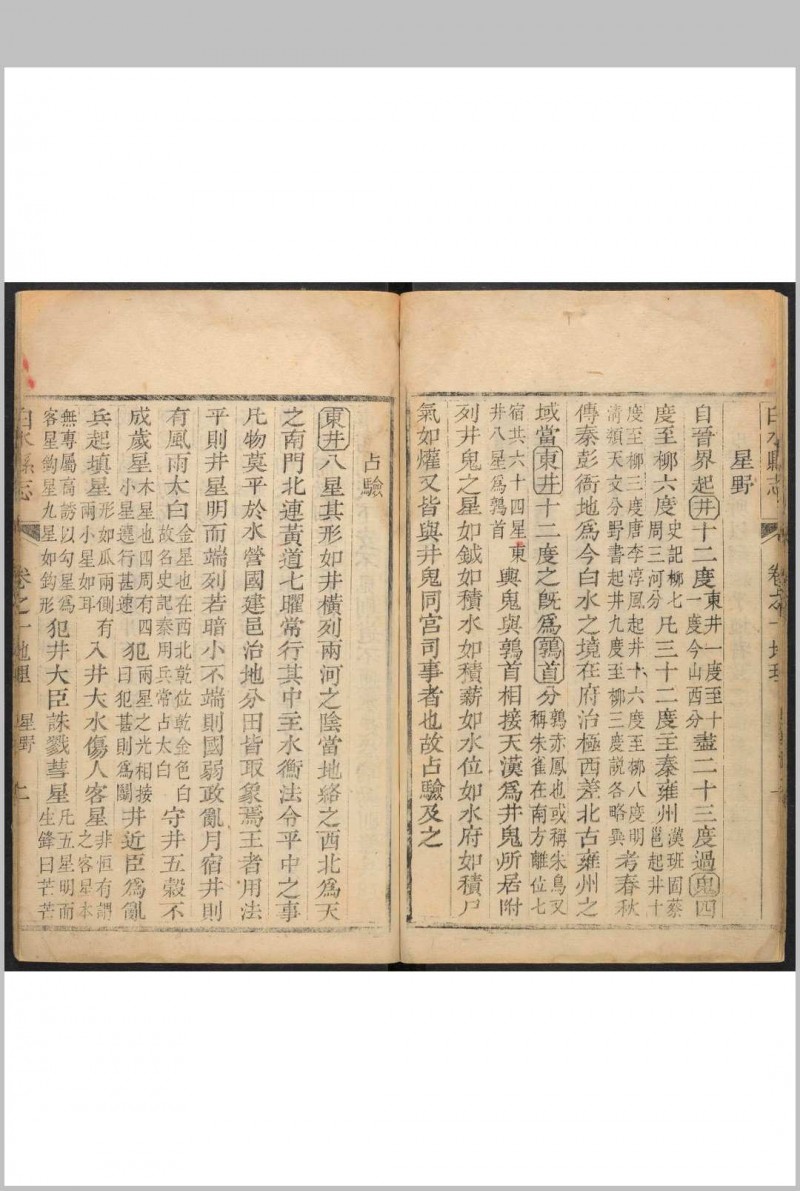 白水縣志 卷之一 地理
星野
自晉界起井十二度東井一度至十一度今山西分盡二十三度過鬼四
度至柳六度史記柳七周三河分凡三十二度主秦雍州漢班固蔡邕起井十
度至柳三度唐李淳風起井十六度至柳八度明清類天文分野書起井九度至柳三度說各略異考春秋
傳秦彭衙地為今白水之境在府治極西差北古雍州之
域當東井十二度之旣爲鶉首分鶉赤鳳也或稱朱鳥又稱朱雀在南方離位七
宿共六十四星東井八星爲鶉首輿鬼與鶉首相接天漢爲井鬼所居附
列井鬼之星如鉞如積水如積薪如水位如水府如積尸
氣如爟又皆與井鬼同宮司事者也故占驗及之
占驗
東井八星其形如井橫列兩河之陰當地絡之西北爲天
之南門北連黃道七曜常行其中主水衡法令平中之事
凡物莫平於水營國建邑治地分田皆取象焉王者用法
平則井星明而端列若暗小不端則國弱政亂月宿井則
有風雨太白金星也在西北乾位乾金色白故名史記秦用兵常占太白守井五穀不
成歲星木星也四周有四小星遶行甚速犯兩星之光相接曰犯犯甚則爲鬭井近臣爲亂
兵起填星形如瓜兩側有兩小星如耳入井大水傷人客星非恒有謂之客星本
無專屬高誘以勾星爲客星鉤星九星如鉤形犯井大臣誅戮彗星凡五星明而生鋒曰芒芒
白水縣志 卷之一 地理 星野 上